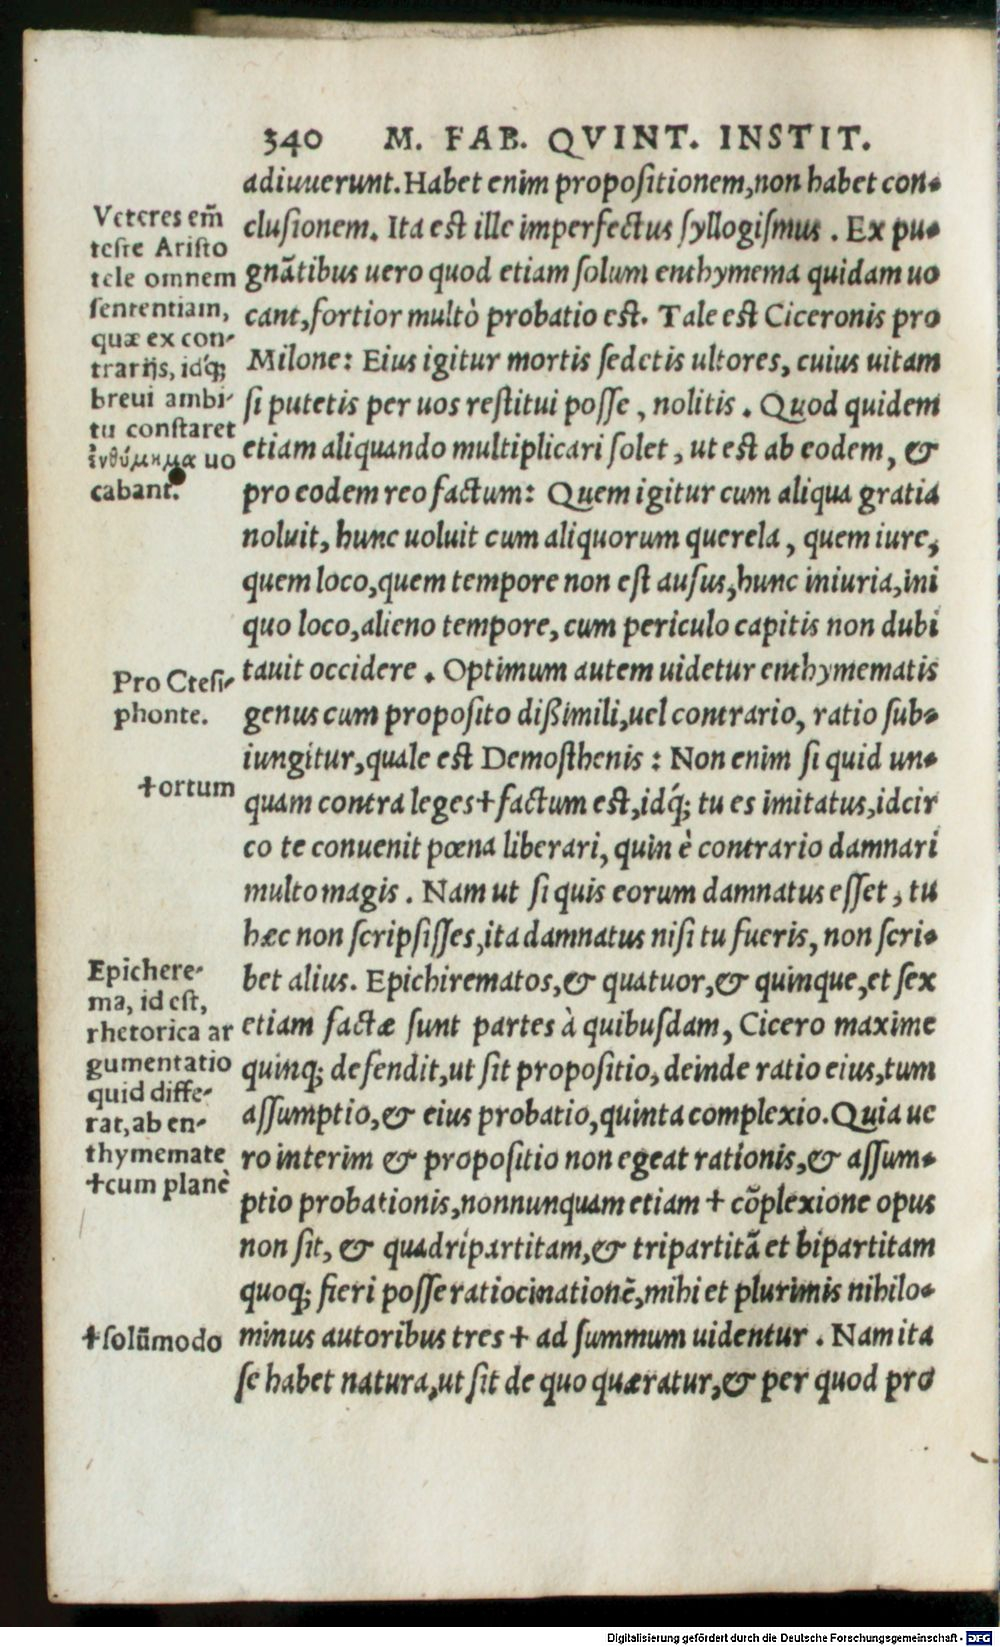 340 M. FAB. QVINT. INSTIT.
adiuuerunt. Habet enim propositionem, non habet con-
clusionem. Ita est ille imperfectus syllogismus. Ex pu-
gnātibus uero quod etiam solum enthymema quidam uo
cant, fortior multò probatio est. Tale est Ciceronis pro
Milone: Eius igitur mortis sedetis ultores, cuius uitam
si putetis per uos restitui posse, nolitis. Quod quidem
etiam aliquando multiplicari solet, ut est ab eodem, &
pro eodem reo factum: Quem igitur cum aliqua gratia
noluit, hunc uoluit cum aliquorum querela, quem iure,
quem loco, quem tempore non est ausus, hunc iniuria, ini
quo loco, alieno tempore, cum periculo capitis non dubi
tauit occidere. Optimum autem uidetur enthymematis
genus cum proposito dißimili, uel contrario, ratio sub-
iungitur, quale est Demosthenis: Non enim si quid un-
quam contra leges † factum est, idq́; tu es imitatus, idcir
co te conuenit pœna liberari, quin è contrario damnari
multo magis. Nam ut si quis eorum damnatus esset, tu
hæc non scripsisses, ita damnatus nisi tu fueris, non scri-
bet alius. Epichirematos, & quatuor, & quinque, et sex
etiam factæ sunt partes à quibusdam, Cicero maxime
quinq; defendit, ut sit propositio, deinde ratio eius, tum
assumptio, & eius probatio, quinta complexio. Quia ue
ro interim & propositio non egeat rationis, & assum-
ptio probationis, nonnunquam etiam † cōplexione opus
non sit, & quadripartitam, & tripartitā et bipartitam
quoq; fieri posse ratiocinationē, mihi et plurimis nihilo-
minus autoribus tres † ad summum uidentur. Nam ita
se habet natura, ut sit de quo quæratur, & per quod pro
Veteres em̄
teste Aristo
tele omnem
sententiam,
quæ ex con-
trarijs, idq́;
breui ambi-
tu constaret
ἐνθύμημα uo
cabant.
Pro Ctesi-
phonte.
†ortum
Epichere-
ma, id est,
rhetorica ar
gumentatio
quid diffe-
rat, ab en-
thymemate
†cum planè
†solūmodo
Digitalisierung gefördert durch die Deutsche Forschungsgemeinschaft - DFG